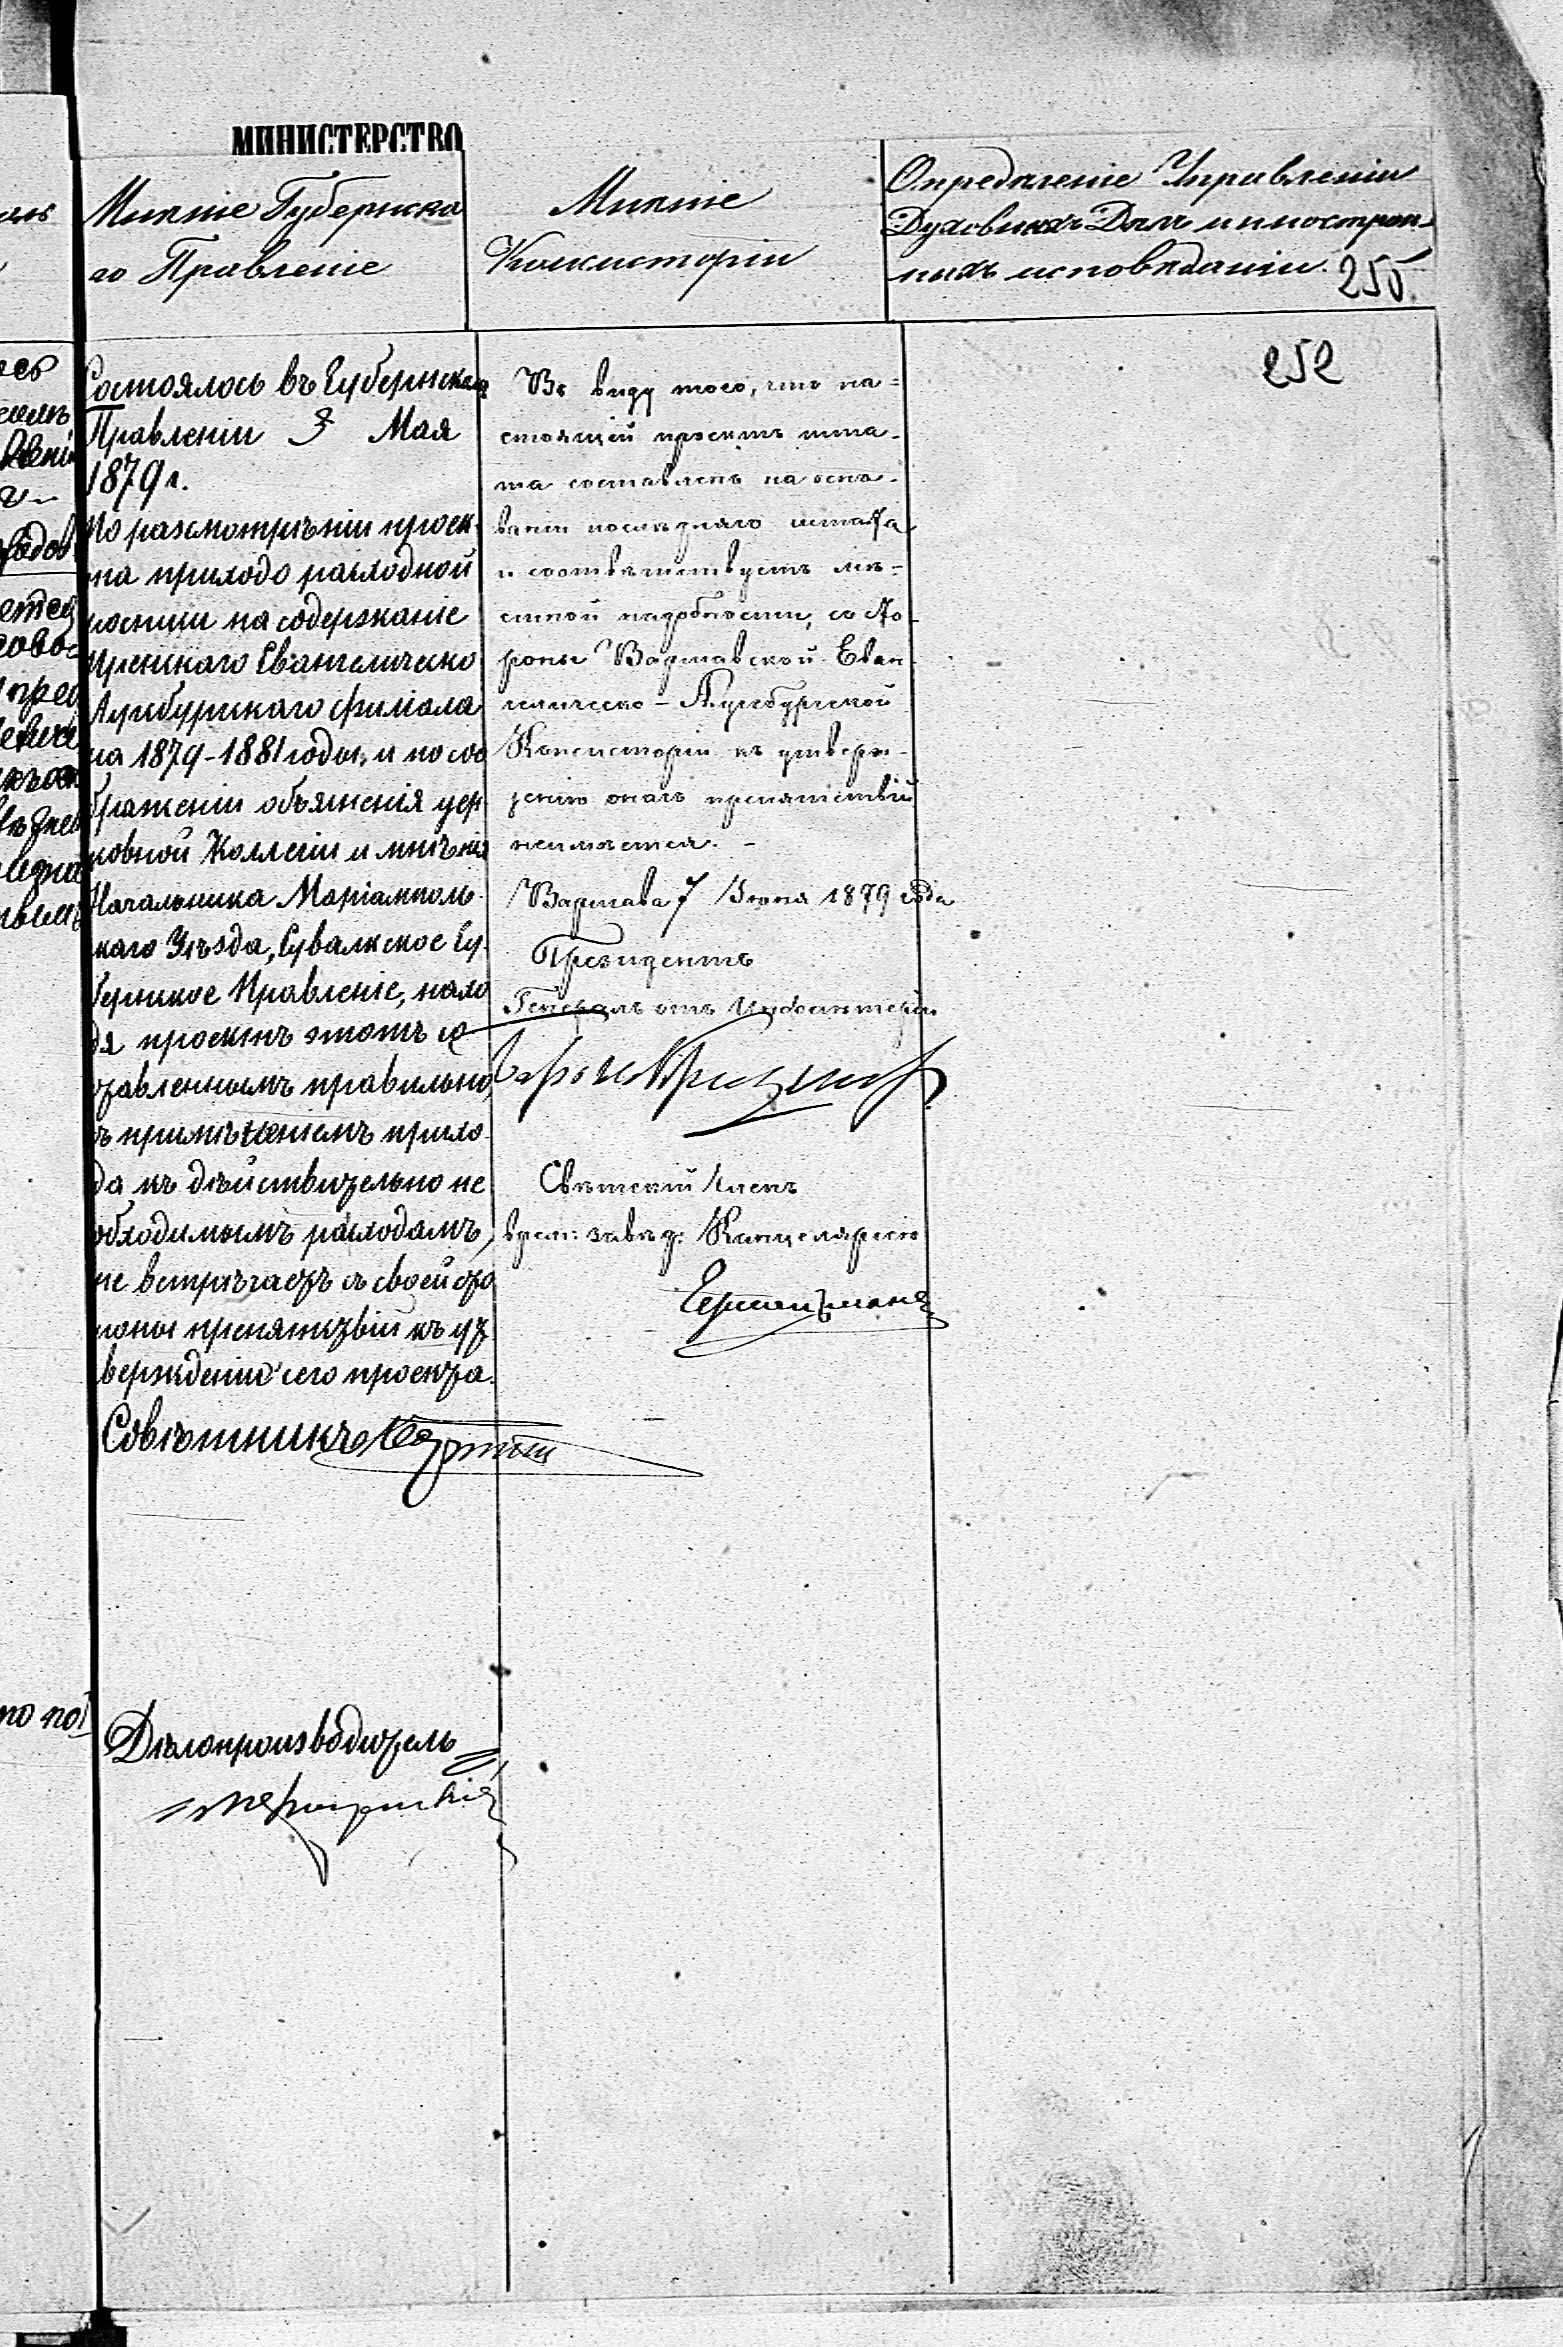 МИНИСТЕРСТВО
Мнѣніе Губернска
го Правленіе
Мнѣніе
Консисторіи
Опредѣленіе Управленія
Духовныхъ Дѣлъ иностран-
ныхъ исповѣданіи.
255
252
Состоялось въ Губернскомъ
Правленіи 3 Мая
1879 г.
По разсмотрѣніи проек-
та приходо расходной
росписи на содержаніе
Евангелическо
Аугсбургскаго филіала
на 1879-1881 годы, и по соо
браженіи объясненія цер
ковной Коллегіи и мнѣнія
Начальника Маріамполь-
скаго Уѣзда, Сувалкское Гу-
бернское Правленіе, нахо
дя проектъ этотъ со
ставленнымъ правильно,
съ примѣненіемъ прихо-
да къ дѣйствительно не
обходимымъ расходамъ,
не встрѣчаетъ съ своей сто
роны препятствій къ ут
вержденію сего проекта.
Совѣтникъ
Дѣлопроизводитель
Въ виду того, что на-
стоящій проектъ шта-
та составленъ на осно-
ваніи послѣдняго штата
и соотвѣтствуетъ мѣ-
стной надобности, со сто-
роны Варшавской Еван-
гелическо-Аугсбургской
Консисторіи къ утверж-
денію онаго препятствій
неимѣется.
Варшава 7 Іюня 1879 года
Президентъ
Генералъ отъ Инфантеріи
Свѣтскій Членъ
врем: завѣд: Канцеляріею